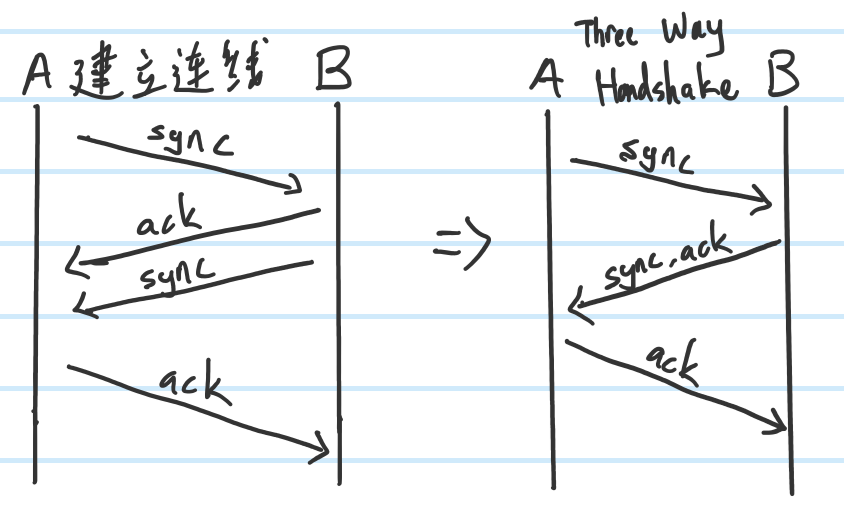 A 建立连线 B
sync
ack
sync
ack
=>
Three Way
A Handshake B
sync
sync, ack
ack